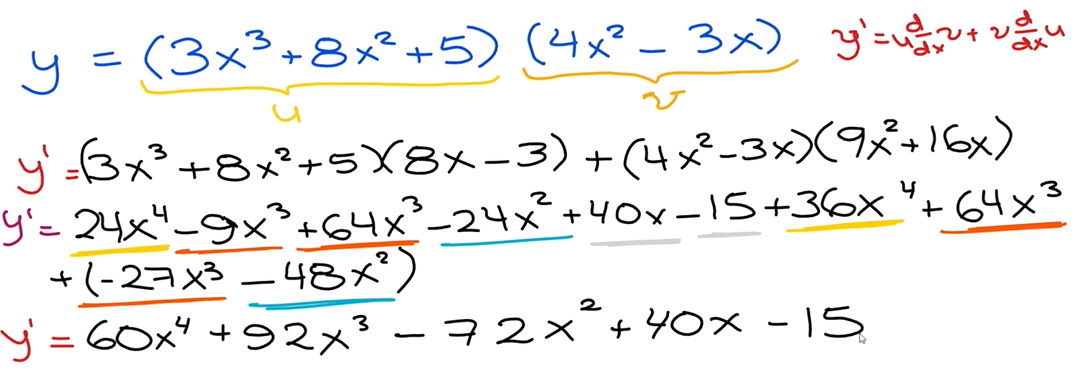 y = (3x³ + 8x² + 5) (4x² - 3x) y' = u d/dx v + v d/dx u
u v
y' = (3x³ + 8x² + 5)(8x - 3) + (4x² - 3x)(9x² + 16x)
y' = 24x⁴ - 9x³ + 64x³ - 24x² + 40x - 15 + 36x⁴ + 64x³
+ (-27x³ - 48x²)
y' = 60x⁴ + 92x³ - 72x² + 40x - 15